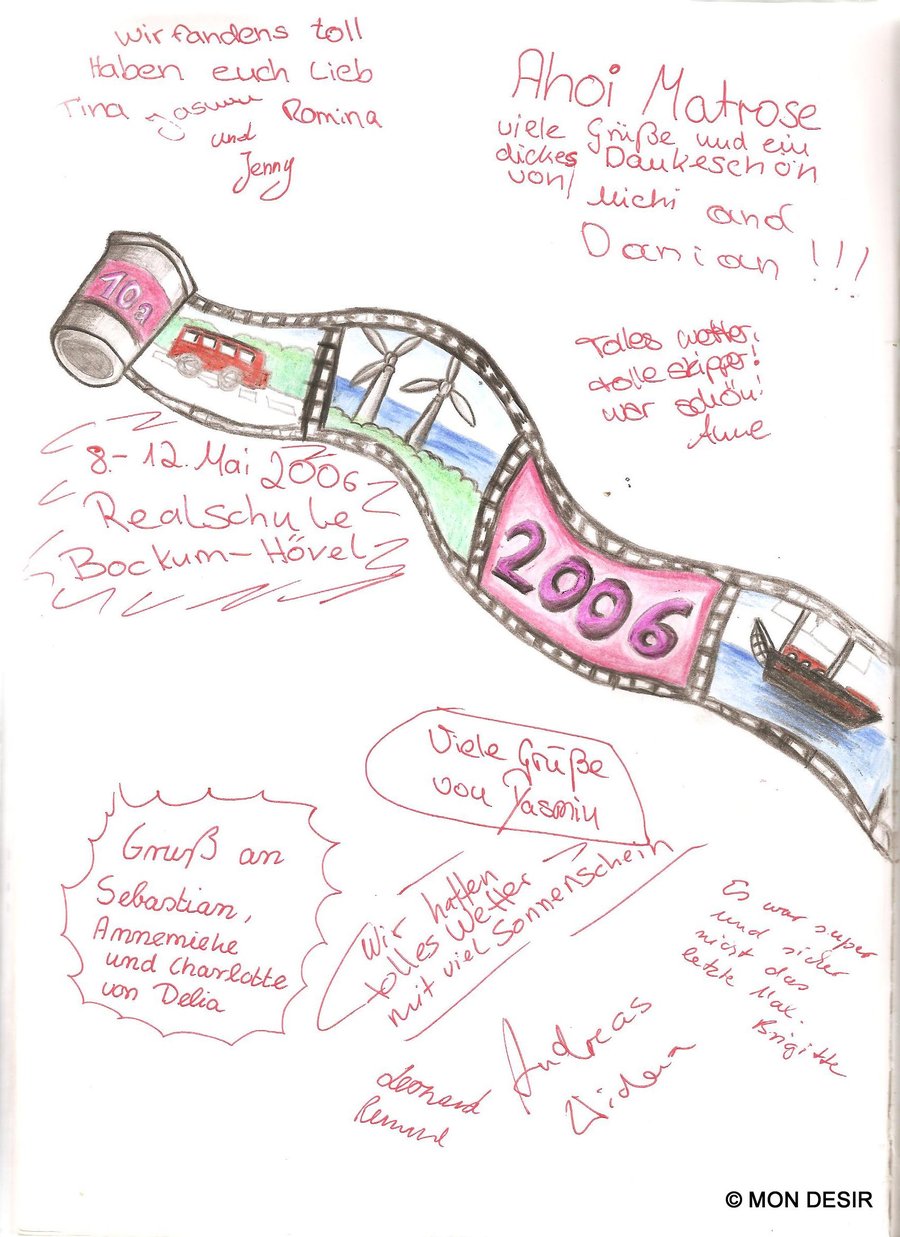 wir fandens toll
Haben euch Lieb
Tina Jasmin Romina
und
Jenny
Ahoi Matrose
viele Grüße und ein
dickes Dankeschön
von Michi and
Danian !!!
10a
Tolles wetter,
tolle skipper!
war schön!
Anne
8.-12. Mai 2006
Realschule
Bockum-Hövel
2006
Viele Grüße
von Yasmin
Gruß an
Sebastian,
Annemieke
und Charlotte
von Delia
Wir hatten
tolles Wetter
mit viel Sonnenschein
Es war super
und sicher
nicht das
letzte Mal.
Brigitte
Andreas
Leonard
© MON DESIR